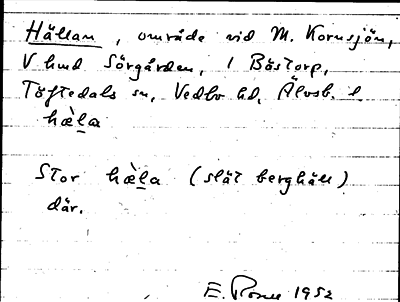 Hällan, område vid M. Kornsjön,
V hmd Sörgården, 1 Bästorp,
Töftedals sn, Vedbo hd, Älvsb. l.
hæ̀la
Stor hæ̀la (slät berghäll)
där.
E. 1952